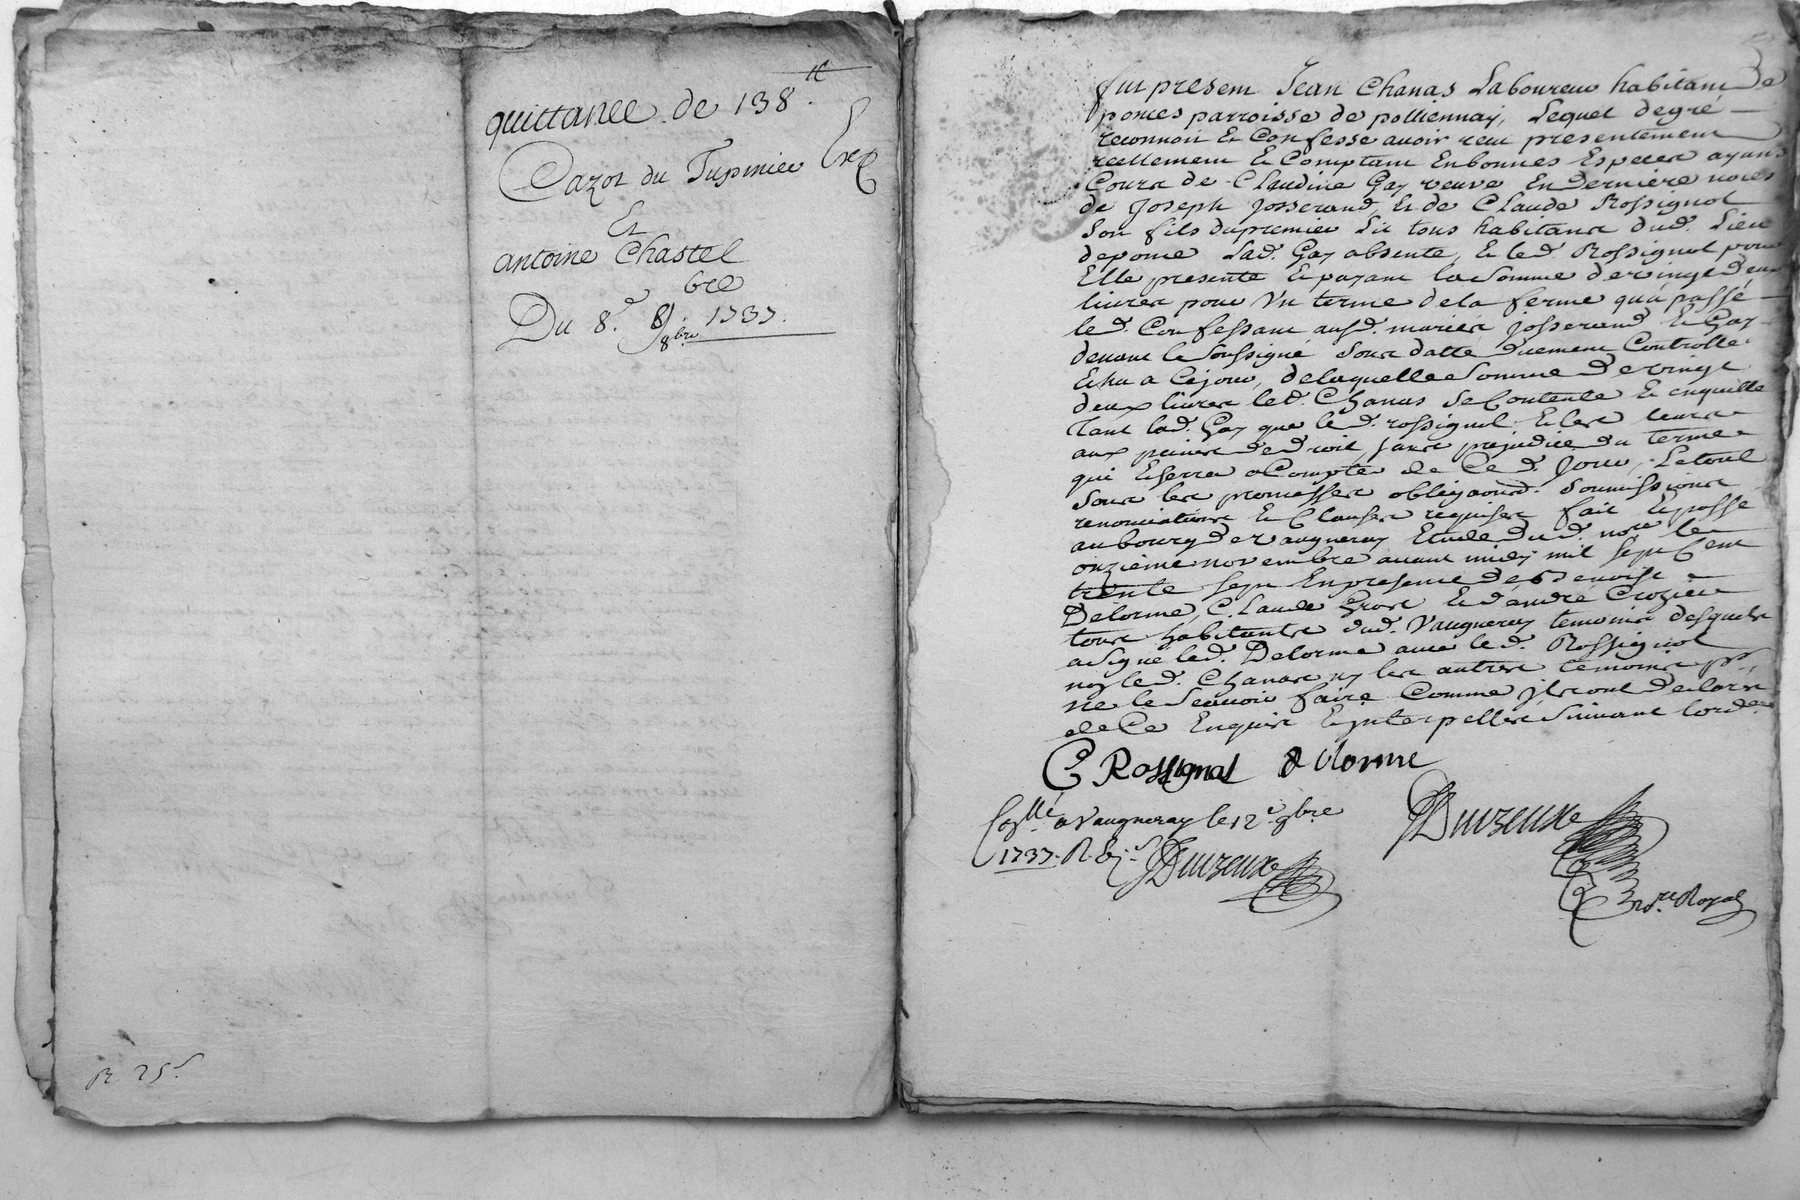 quittance de 138 ᵗᵗ
Cazot du Tupinier
Et
antoine Chastel
bre
Du 8.e 8 1737.
9bre
R 25s.
fut present Jean Chanas Laboureur habitant de
ponces parroisse de polliennay, Lequel degré
reconnoit Et Confesse avoir receu presentement
reellement Et Comptant En bonnes Especes ayans
Cours de Claudine Gay veuve En derniere noces
de Joseph Josserand, Et de Claude Rossignol
Son fils du premier Lit tous habitans dud. Lieu
de ponce Lad. Gay absente, Et led. Rossignol pour
Elle presente Et payant la Somme de vingt deux
livres pour Un terme de la ferme qu'a passé
led. Confessant ausd. mariés Josserand Et Gay
devant le Soussigné Sous datte duement Controllé
Echu a Cejour, de laquelle Somme de vingt
deux livres led. Chanas Se Contente Et en quitte
tant lad. Gay que led. rossignol Et les leurs
aux peines de droit, sans prejudice du terme
qui Eherra a Compter de Ce d. Jour, Le tout
Sous les promesses obligaons. Soumissions
renonciations Et Clauses requises fait Et passé
au bourg de vaugneray Etude dud. nore le
onzieme novembre avant midy mil Sept Cent
trente Sept En presence de Benoist
Delorme, Claude Gros Et d'andré Crozier
tous habitants dud. Vaugneray temoins desquels
a Signe led. Delorme avec led. Rossignol
non led. Chanas ny les autres temoins pr.
ne le Scavoir faire Comme ils ont declaré
de Ce Enquis Et interpellés Suivant lord.ce
C Rossignol delorme
Coll.é a Vaugneray le 12e 9bre
1737. R. 6 s. Duvreuxe
Duvreuxe
nore Royal